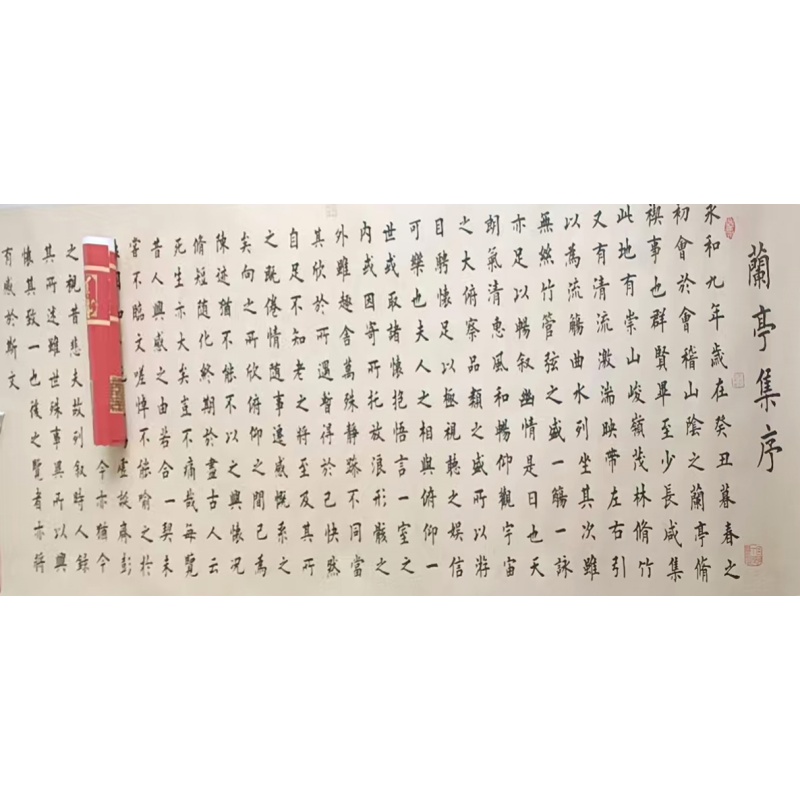 蘭亭集序
永和九年歲在癸丑暮春之
初會於會稽山陰之蘭亭脩
禊事也群賢畢至少長咸集
此地有崇山峻嶺茂林脩竹
又有清流激湍映帶左右引
以為流觴曲水列坐其次雖
無絲竹管弦之盛一觴一詠
亦足以暢叙幽情是日也天
朗氣清惠風和暢仰觀宇宙
之大俯察品類之盛所以游
目騁懷足以極視聽之娱信
可樂也夫人之相與俯仰一
世或取諸懷抱悟言一室之
内或因寄所托放浪形骸之
外雖趣舍萬殊静躁不同當
其欣於所遇暫得於己快然
自足不知老之將至及其所
之既倦情随事遷感慨系之
矣向之所欣俯仰之間已為
陳迹猶不能不以之興懷況
脩短随化終期於盡古人云
死生亦大矣豈不痛哉每覽
昔人興感之由若合一契未
嘗不臨文嗟悼不能喻之於
虛誕齊彭
今亦猶今
之視昔悲夫故列叙時人録
其所述雖世殊事異所以興
懷其致一也後之覽者亦將
有感於斯文